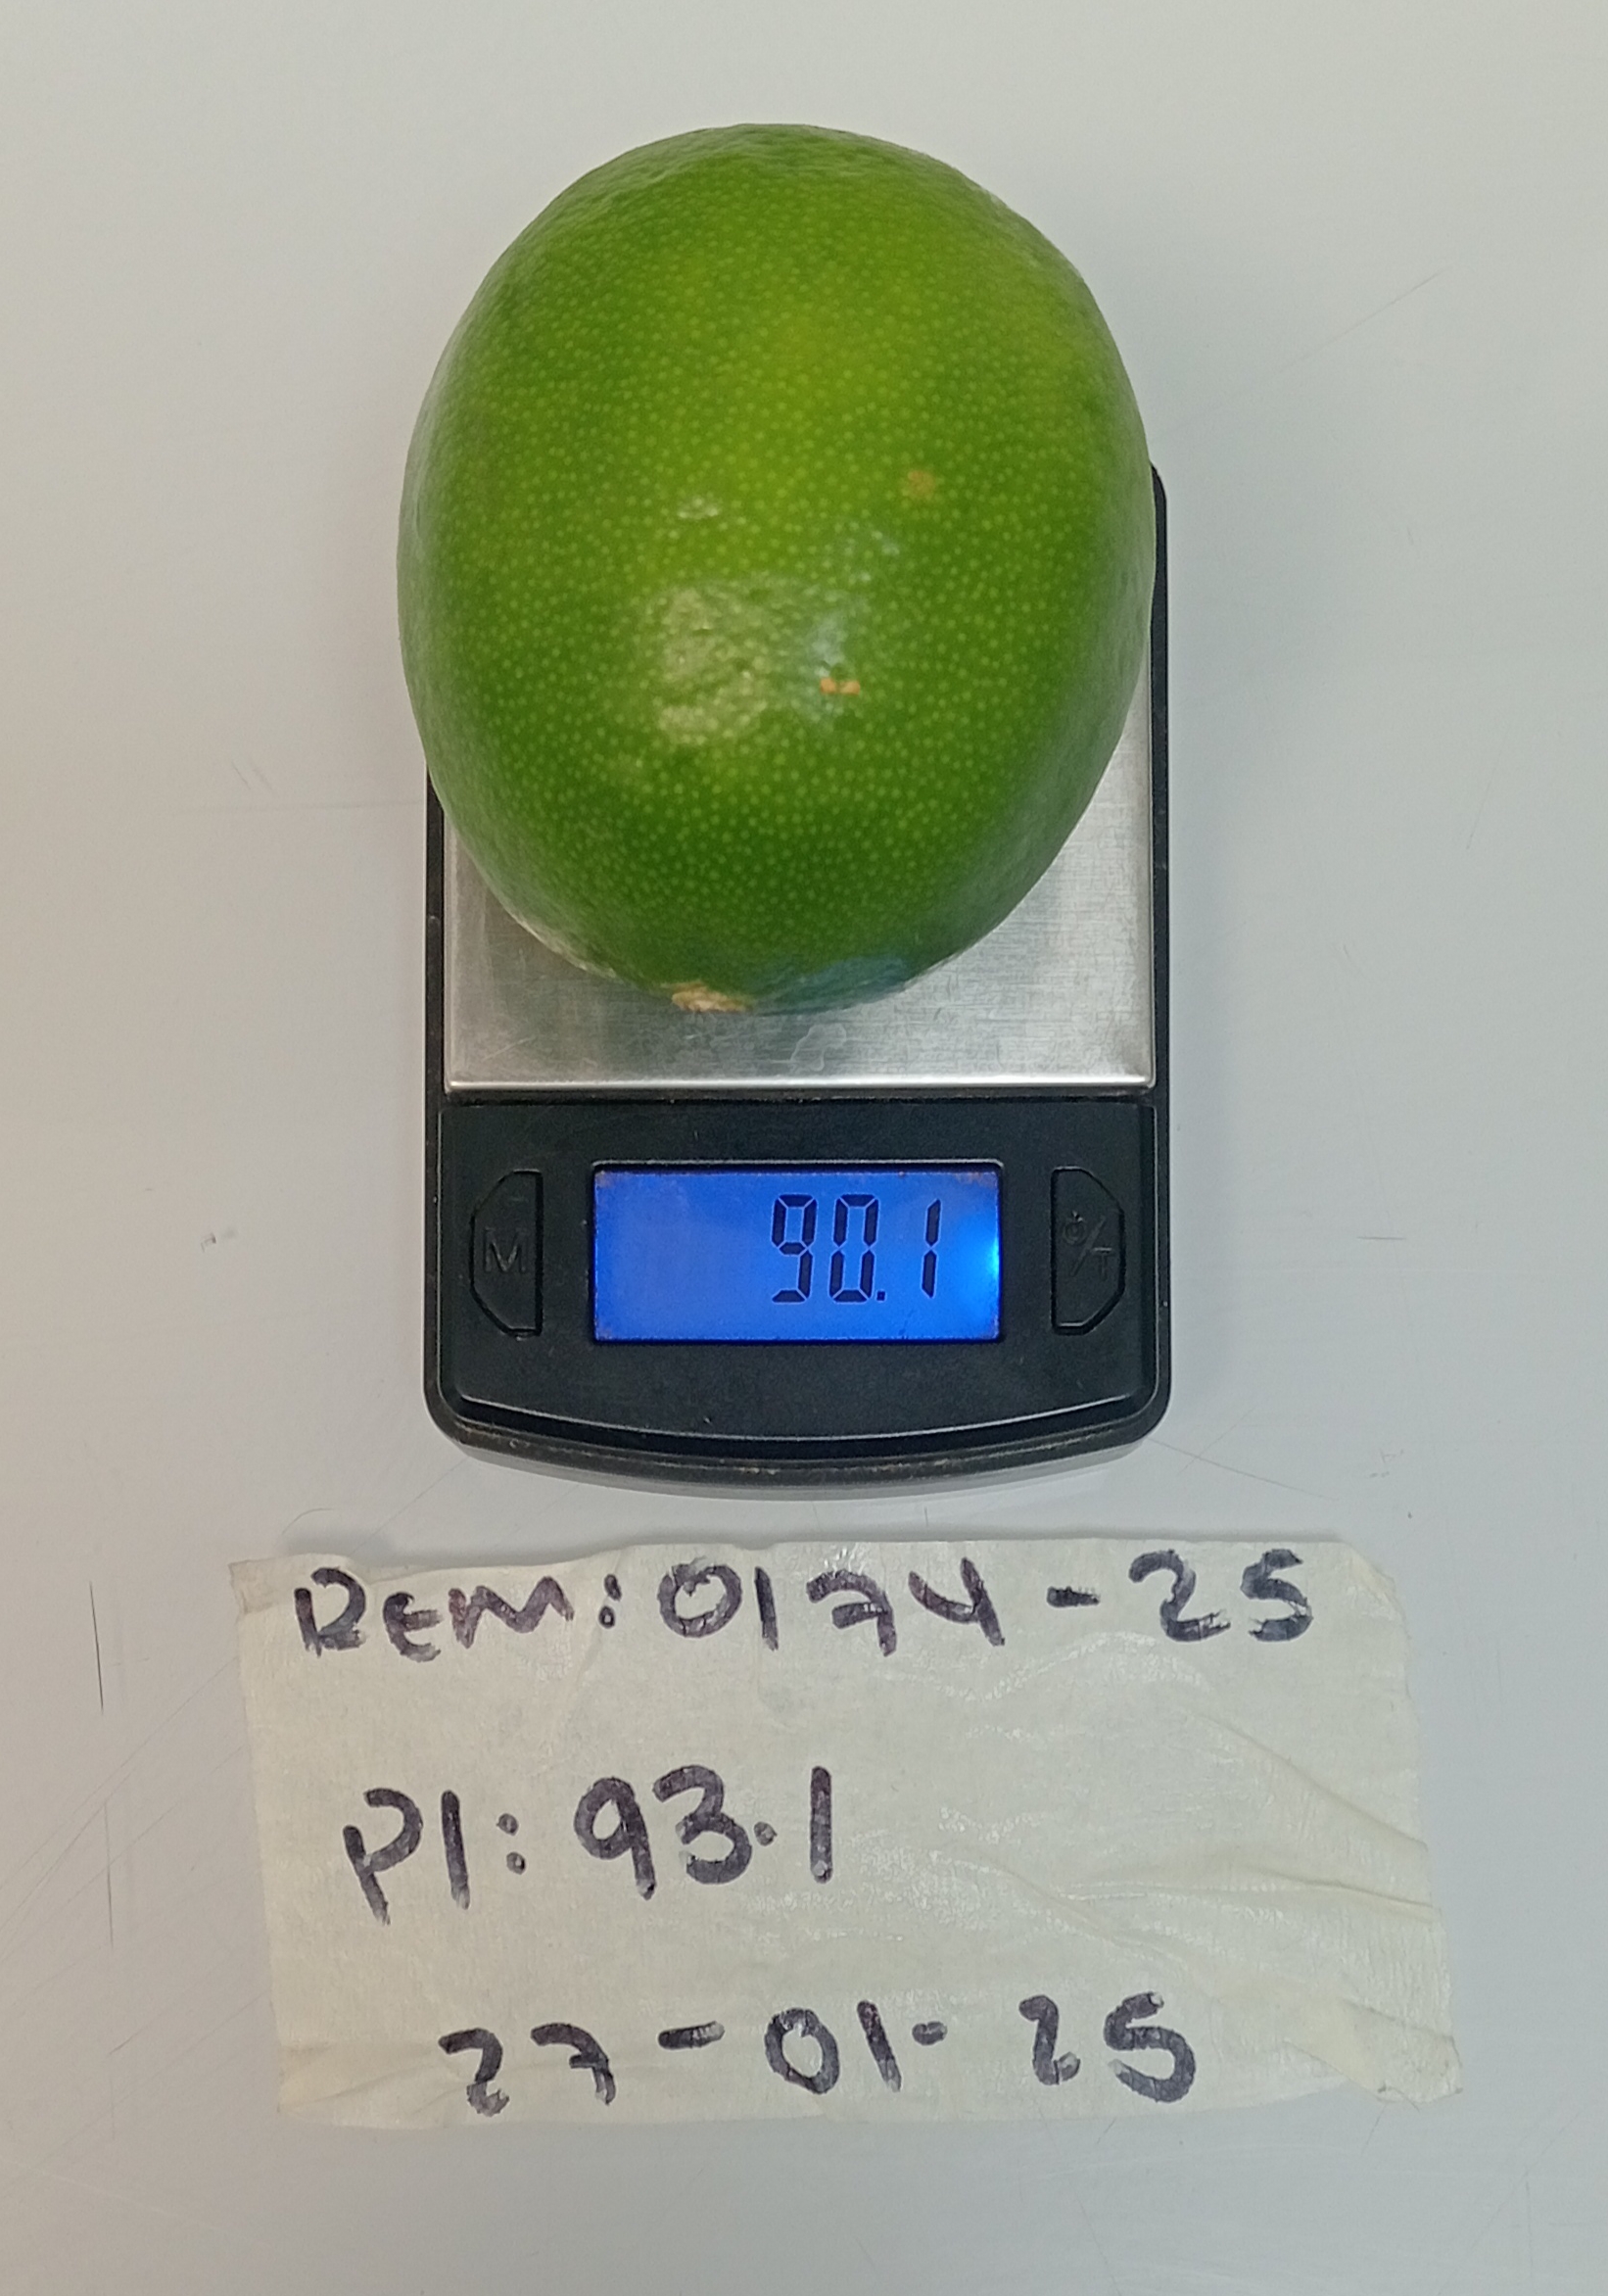 90.1
M
⏻/T
REM: 0174-25
PI: 93.1
27-01-25